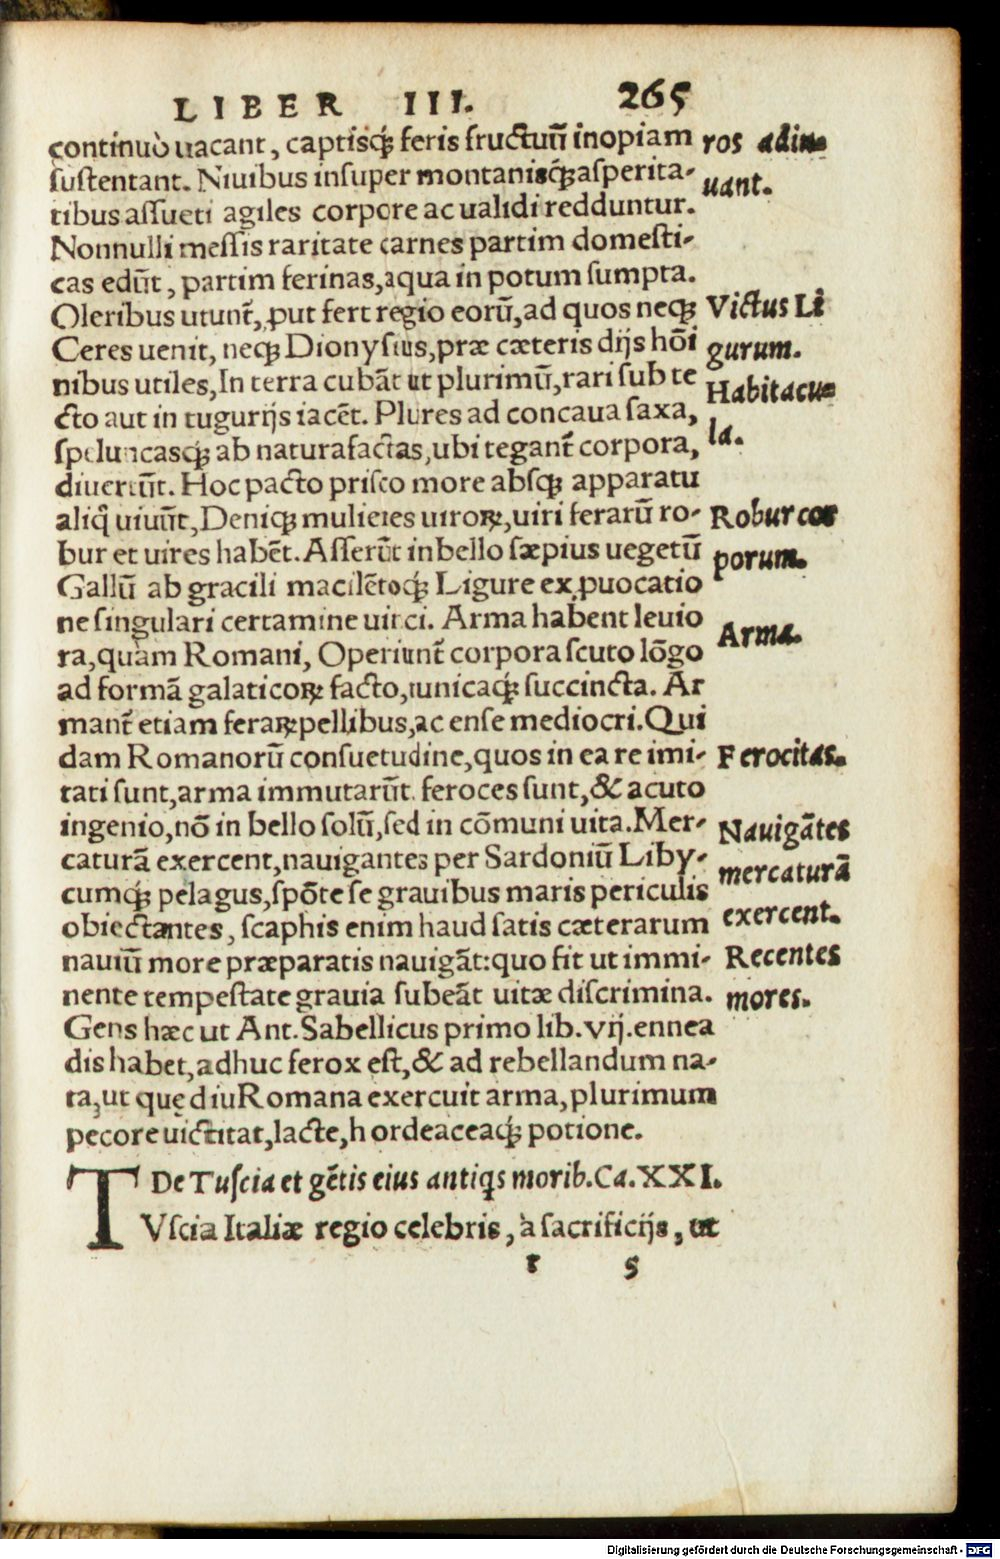 LIBER III. 265
continuò uacant, captisq́ꝫ feris fructuũ inopiam
sustentant. Niuibus insuper montanisq́ꝫ asperita-
tibus assueti agiles corpore ac ualidi redduntur.
Nonnulli messis raritate carnes partim domesti-
cas edũt, partim ferinas, aqua in potum sumpta.
Oleribus utunt᷑, ꝓut fert regio eorũ, ad quos neqꝫ
Ceres uenit, neqꝫ Dionysius, præ cæteris dijs hõi
nibus utiles, In terra cubãt ut plurimũ, rari sub te
cto aut in tugurijs iacẽt. Plures ad concaua saxa,
speluncasq́ꝫ ab natura factas, ubi tegant᷑ corpora,
diuertũt. Hoc pacto prisco more absqꝫ apparatu
aliq̃ uiuũt, Deniqꝫ mulieres uiroꝝ, uiri ferarũ ro-
bur et uires habẽt. Asserũt in bello sæpius uegetũ
Gallũ ab gracili macilẽtoq́ꝫ Ligure ex ꝓuocatio
ne singulari certamine uinci. Arma habent leuio
ra, quàm Romani, Operiunt᷑ corpora scuto lõgo
ad formã galaticoꝝ facto, tunicaq́ꝫ succincta. Ar
mant᷑ etiam feraꝝ pellibus, ac ense mediocri. Qui
dam Romanorũ consuetudine, quos in ea re imi-
tati sunt, arma immutarũt. feroces sunt, & acuto
ingenio, nõ in bello solũ, sed in cõmuni uita. Mer-
caturã exercent, nauigantes per Sardoniũ Liby-
cumq́ꝫ pelagus, spõte se grauibus maris periculis
obiectantes, scaphis enim haud satis cæterarum
nauiũ more præparatis nauigãt: quo fit ut immi-
nente tempestate grauia subeãt uitæ discrimina.
Gens hæc ut Ant. Sabellicus primo lib. vij. ennea
dis habet, adhuc ferox est, & ad rebellandum na-
ta, ut quę diu Romana exercuit arma, plurimum
pecore uictitat, lacte, hordeaceaq́ꝫ potione.
De Tuscia et gẽtis eius antiqs morib. Ca. XXI.
TVscia Italiæ regio celebris, à sacrificijs, ut
r 5
ros adiu-
uant.
Victus Li
gurum.
Habitacu-
la.
Robur cor
porum.
Arma.
Ferocitas.
Nauigãtes
mercaturã
exercent.
Recentes
mores.
Digitalisierung gefördert durch die Deutsche Forschungsgemeinschaft - DFG